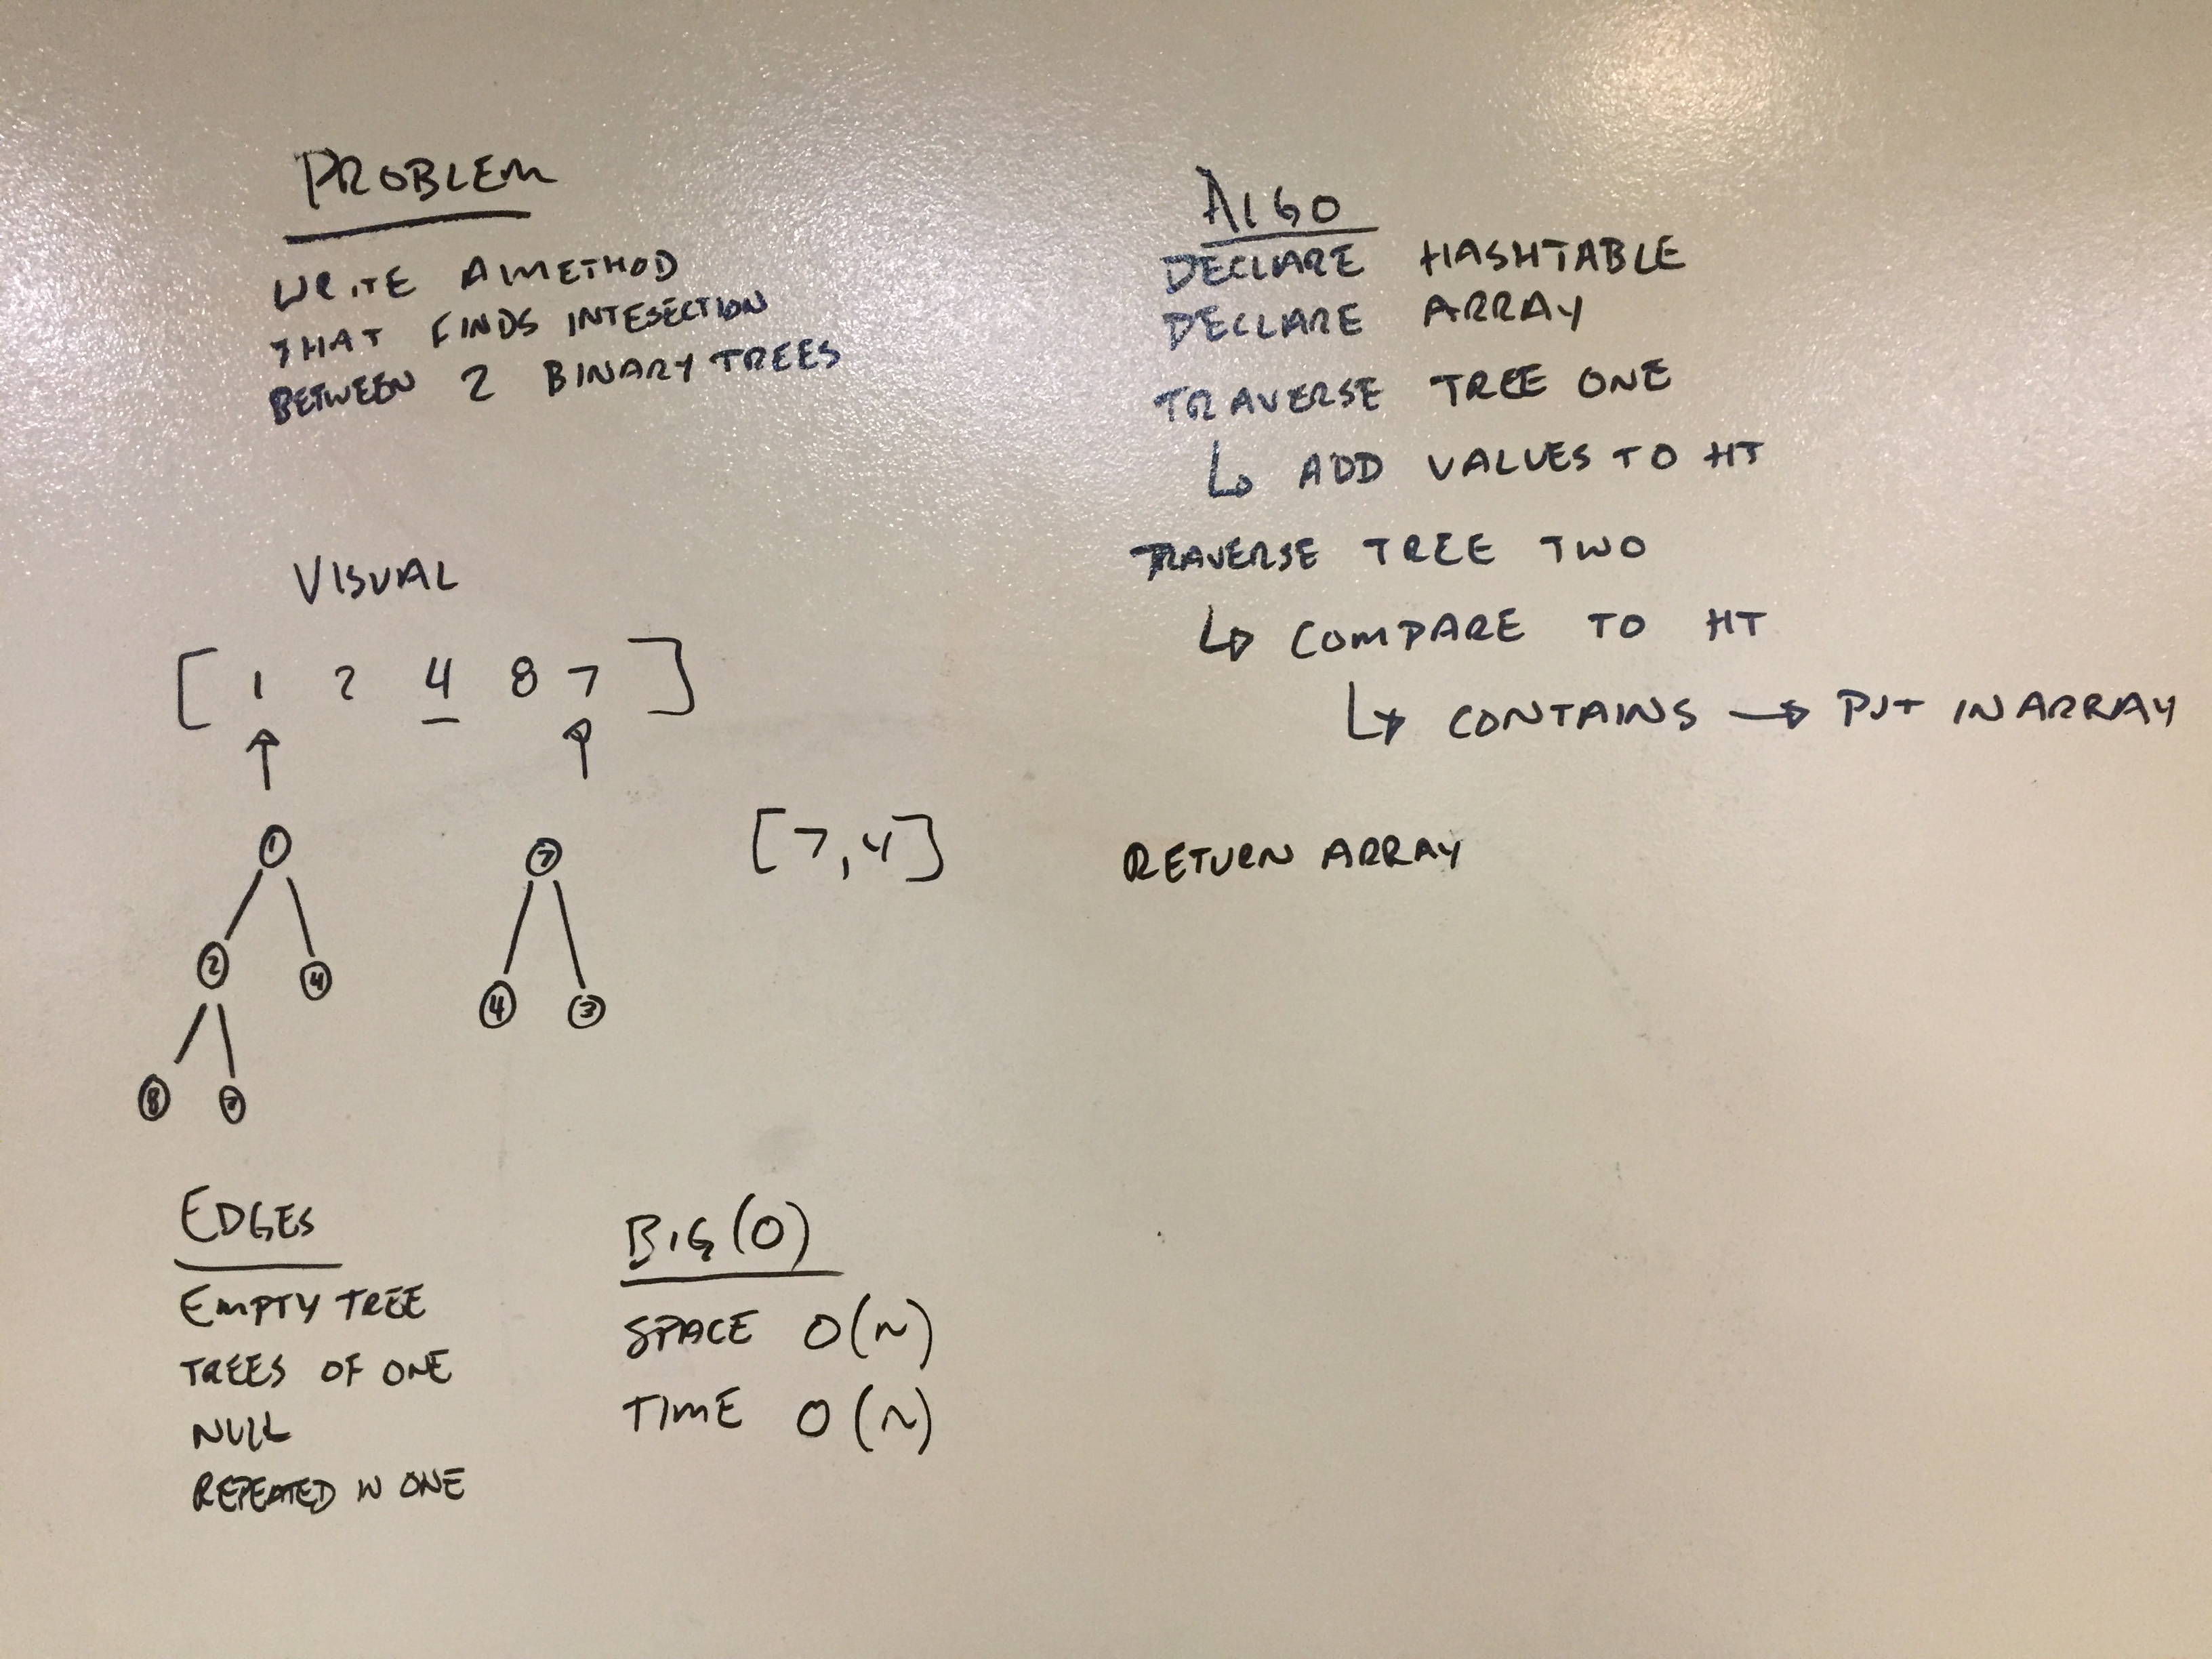 PROBLEM
WRITE A METHOD
THAT FINDS INTESECTION
BETWEEN 2 BINARY TREES
VISUAL
[ 1 2 4 8 7 ]
1
2 4
8 7
7
4 3
[7,4]
EDGES
EMPTY TREE
TREES OF ONE
NULL
REPEATED IN ONE
BIG(O)
SPACE O(N)
TIME O(N)
ALGO
DECLARE HASHTABLE
DECLARE ARRAY
TRAVERSE TREE ONE
↳ ADD VALUES TO HT
TRAVERSE TREE TWO
↳ COMPARE TO HT
↳ CONTAINS → PUT IN ARRAY
RETURN ARRAY